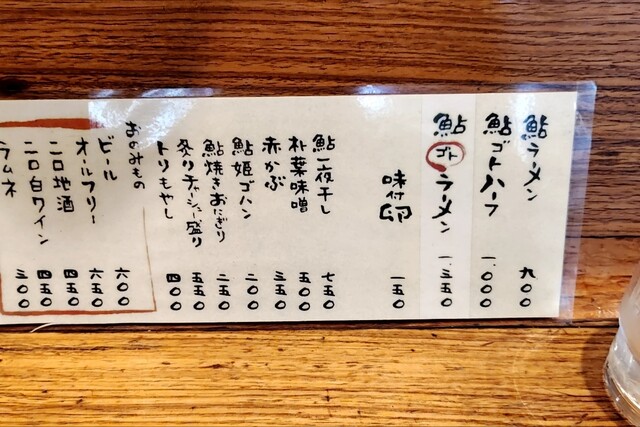 鮎ラメン 九〇〇
鮎ゴトハーフ 一、〇〇〇
鮎ゴトラーメン 一、三五〇
味付卵 一五〇
鮎一夜干し 七五〇
朴葉味噌 五〇〇
赤かぶ 三五〇
鮎姫ゴハン 二〇〇
鮎焼きおにぎり 二五〇
炙りチャーシュー盛り 五五〇
トリもやし 四〇〇
おのみもの
ビール 六〇〇
オールフリー 六五〇
二口地酒 四五〇
二口白ワイン 四五〇
ラムネ 三〇〇